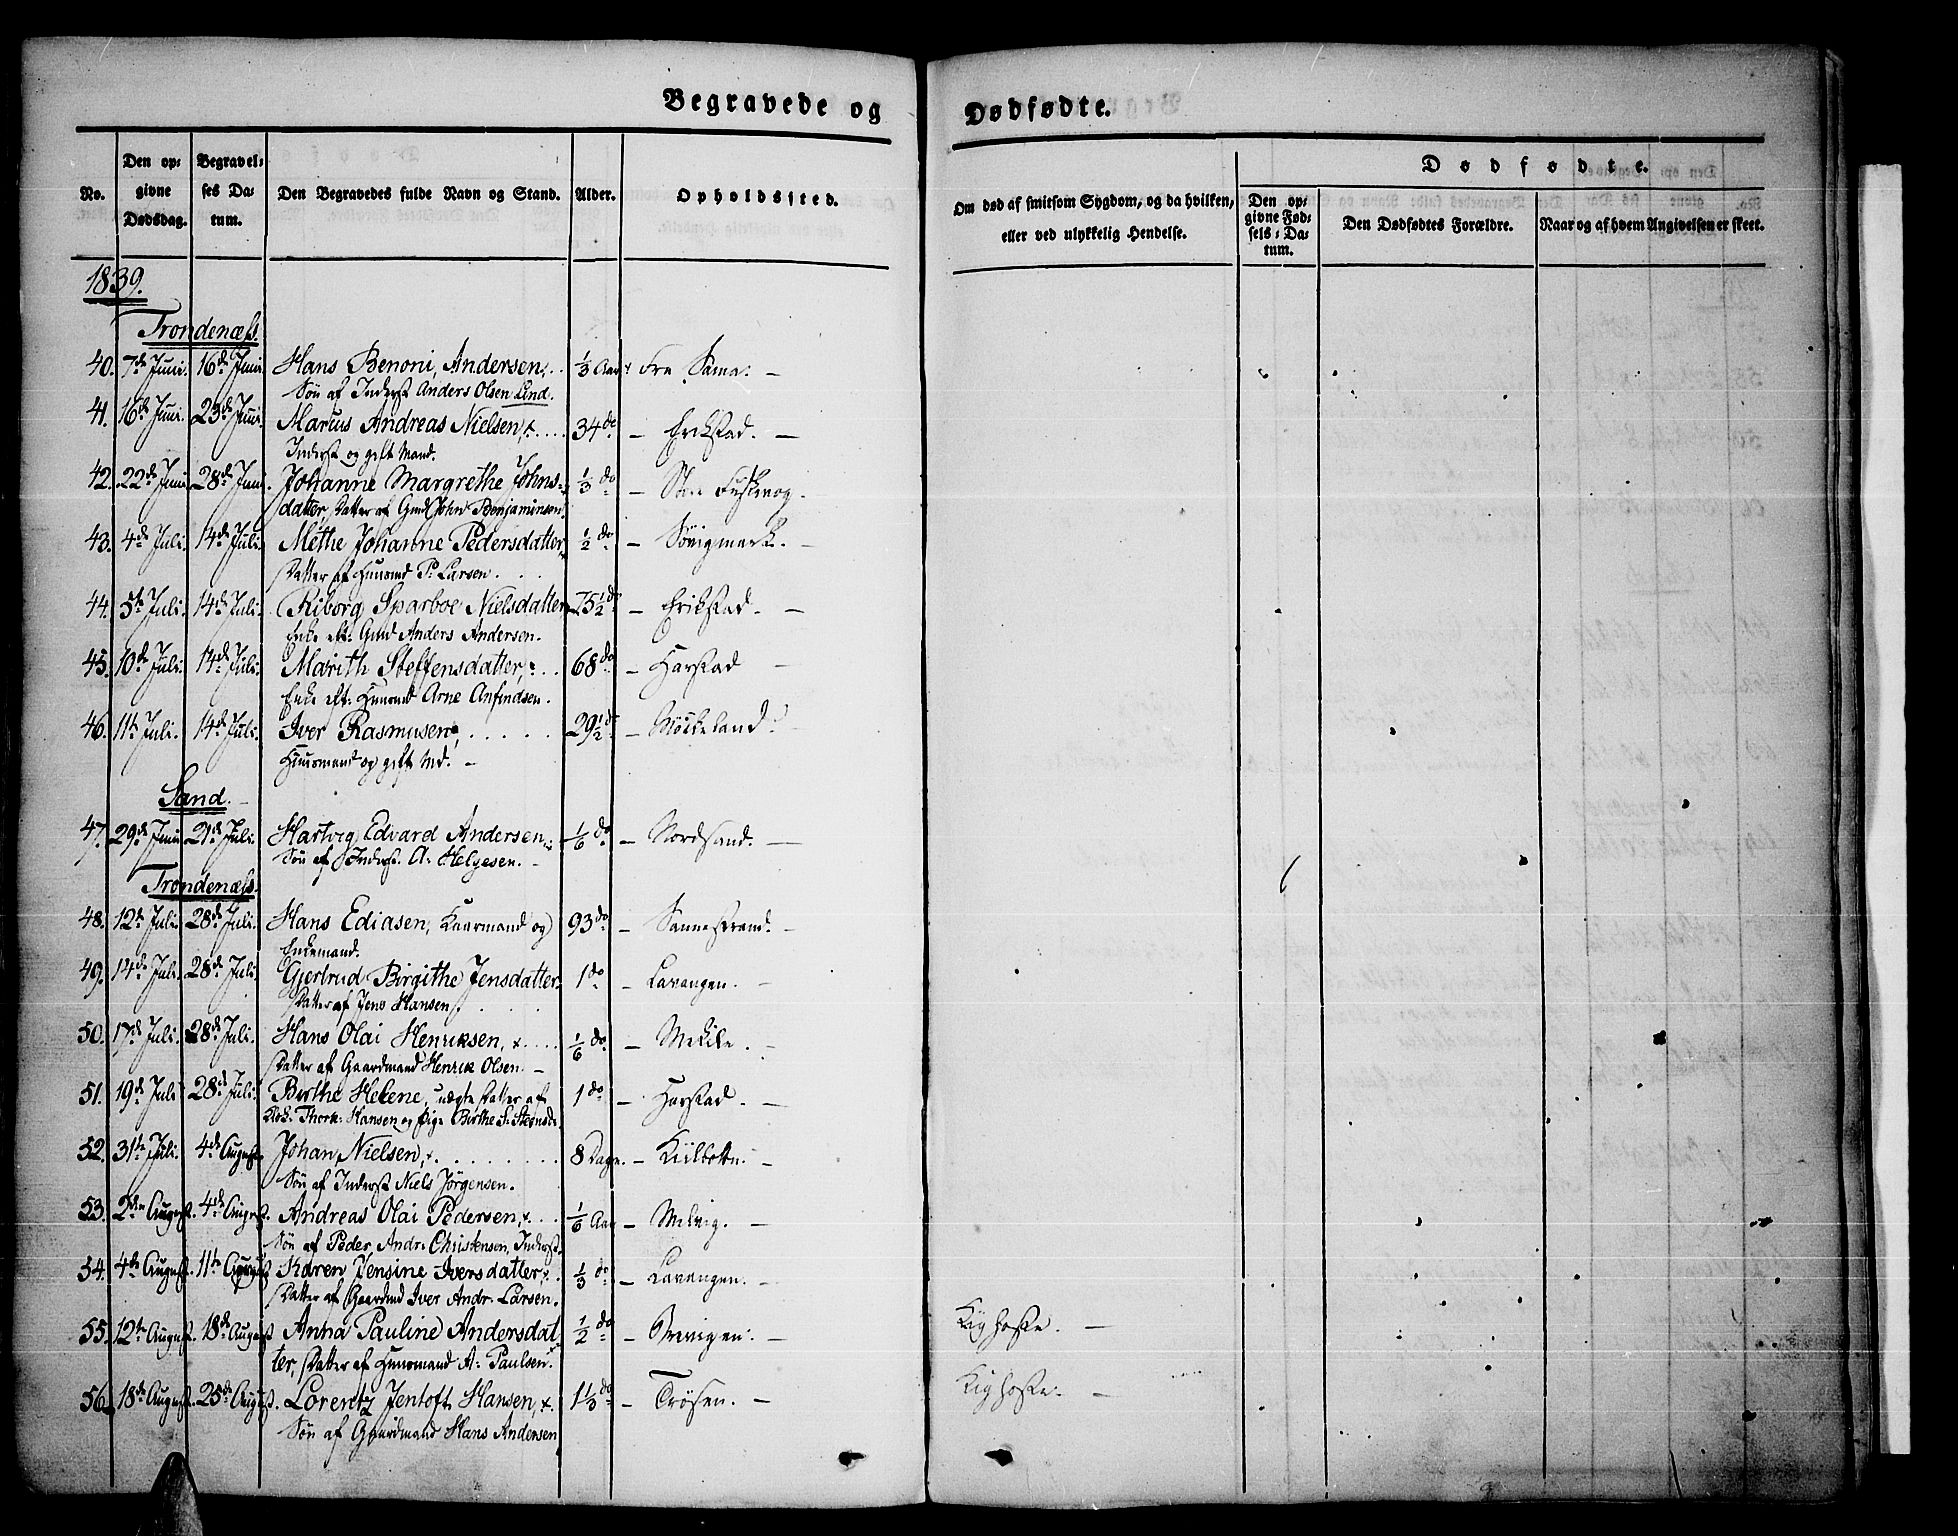 Begravede og Dødfødte.
No.
Den opgivne Dødsdag.
Begravelses Datum.
Den Begravedes fulde Navn og Stand.
Alder.
Opholdssted.
Om død af smitsom Sygdom, og da hvilken,
eller ved ulykkelig Hendelse.
Dødfødte.
Den opgivne Fødsels-Datum.
Den Dødfødtes Forældre.
Naar og af hvem Angivelsen er skeet.
1839.
Trondenæss.
40. 7de Juni. 16de Juni Hans Benoni Andersen, 1/3 Aar Fra Sama. —
Søn af Inderst Anders Olsen Lind.
41. 16de Juni. 23de Juni. Marcus Andreas Nielsen, 34 do — Erikstad. —
Inderst og gift Mand.
42. 22de Juni 28de Juni. Johanne Margrethe Johns- 1/3 do — Store Fuskevog.
datter, Datter af Gmd John Benjaminsen.
43. 4de Juli. 14de Juli. Methe Johanne Pedersdatter, 1/2 do — Sövigmark. —
Datter af Huusmd P: Larsen.
44. 5te Juli. 14de Juli. Riborg Sparboe Nielsdatter, 75 1/2 do — Erikstad. —
Enke eft: Gmd Anders Andersen.
45. 10de Juli. 14de Juli. Marith Steffensdatter, 68 do — Harstad —
Enke eft: Huusmd Arne Anfindsen.
46. 11te Juli. 14de Juli. Iver Rasmusen, 29 1/2 do — Möckeland.
Huusmand og gift Md. —
Sand.
47. 29de Juni 21de Juli. Hartvig Edvard Andersen 1/6 do — Nordsand. —
Søn af Inderst. A: Helgesen. —
Trondenæss.
48. 12te Juli. 28de Juli. Hans Ediasen, Kaarmand og 93 do — Sannestrand. —
Enkemand.
49. 14de Juli. 28de Juli. Gjertrud Birgithe Jensdatter. 1 do — Lavangen. —
Datter af Jens Hansen.
50. 17de Juli. 28de Juli. Hans Olai Henriksen, 1/6 do — Melile. —
Datter af Gaardmand Henrik Olsen. —
51. 19de Juli 28de Juli. Birthe Helene, uægte Datter af 1 do — Harstad. —
Thork: Hansen og Pige Birthe S: Stensd.
52. 31te Juli. 4de August. Johan Nielsen, 8 Dage. — Kiilbotn. —
Søn af Inderst Niels Jörgensen.
53. 2den August. 4de August. Andreas Olai Pedersen, 1/6 Aar — Melvig. —
Søn af Peder Andr: Christensen, Inderst.
54. 4de August. 11te August Karen Jensine Iversdatter, 1/3 do — Lavangen. —
Datter af Gaardmd Iver Andr: Larsen.
55. 12te August. 18de August Anna Pauline Andersdat 1/2 do — Brevigen. — Kighoste. —
ter, Datter af Huusmand A: Paulsen.
56. 18de August. 25de August. Lorentz Jentoft Hansen, 1 1/3 do — Trøsen. — Kighoste. —
Søn af Gaardmand Hans Andersen